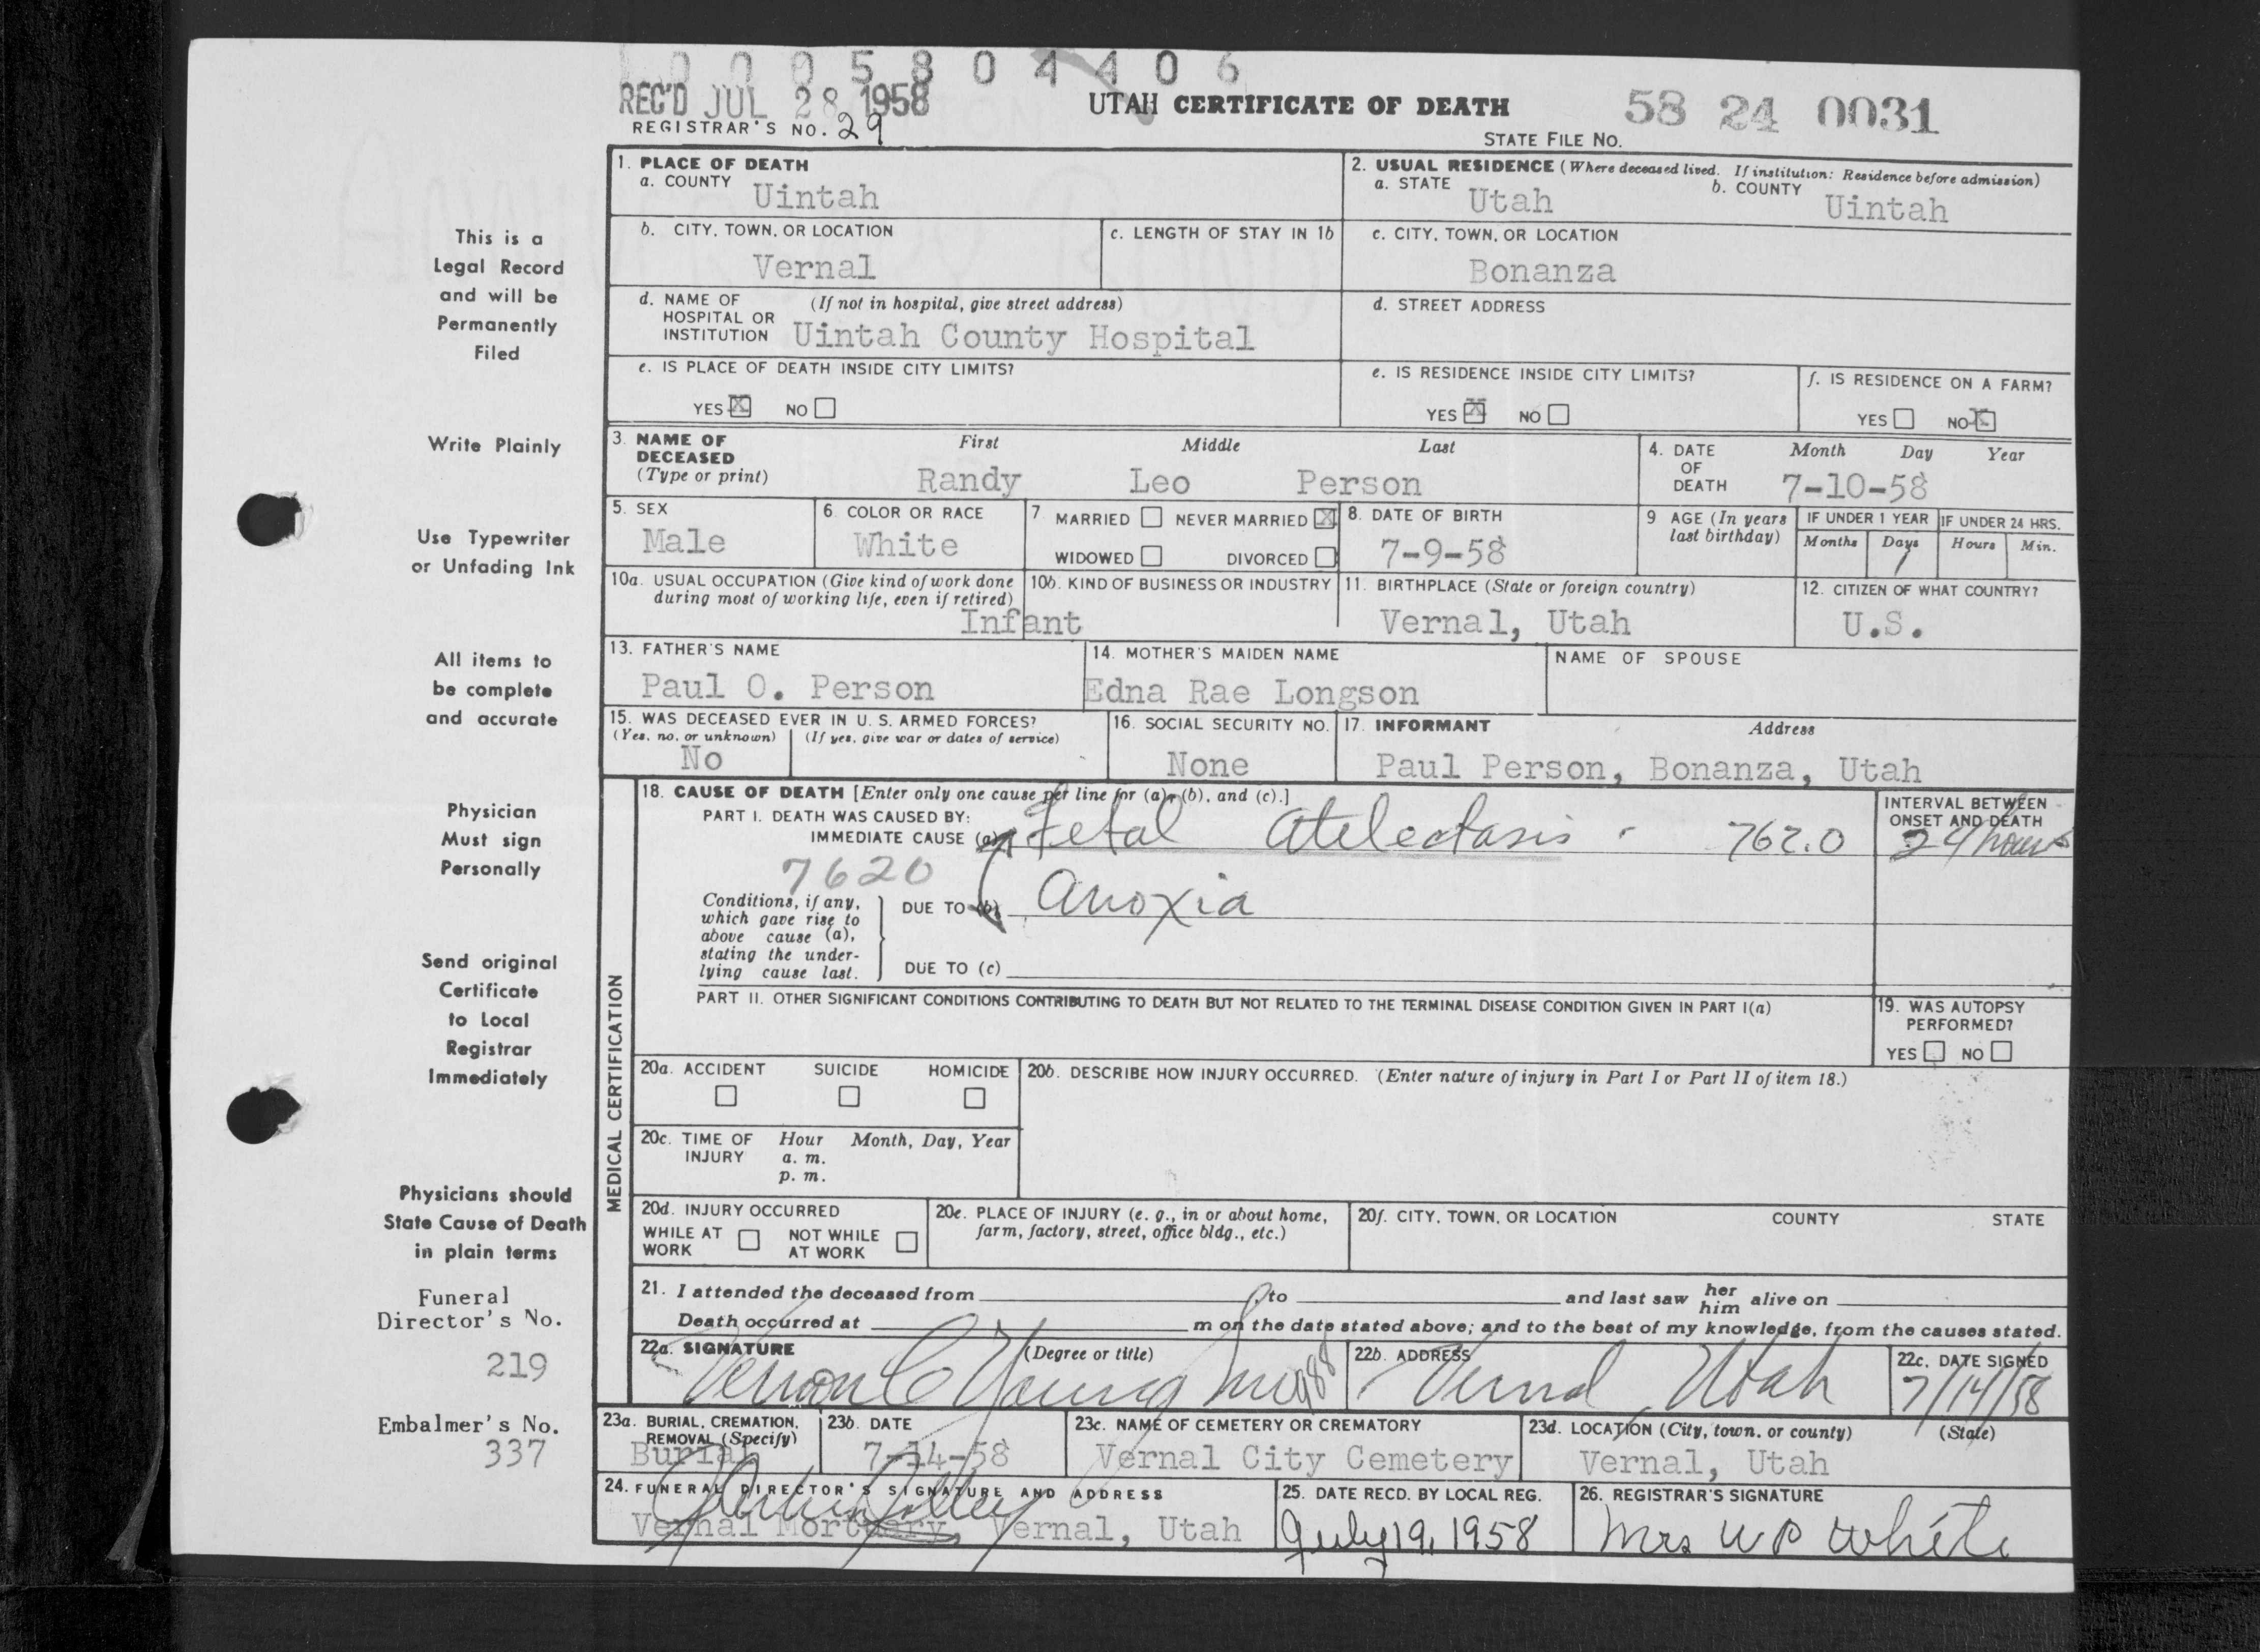 0 0 0 5 8 0 4 4 0 6
REC'D JUL 28 1958
UTAH CERTIFICATE OF DEATH
58 24 0031
REGISTRAR'S NO. 29
STATE FILE NO.
1. PLACE OF DEATH
a. COUNTY Uintah
2. USUAL RESIDENCE (Where deceased lived. If institution: Residence before admission)
a. STATE Utah b. COUNTY Uintah
b. CITY, TOWN, OR LOCATION
Vernal
c. LENGTH OF STAY IN 1b
c. CITY, TOWN, OR LOCATION
Bonanza
d. NAME OF HOSPITAL OR INSTITUTION (If not in hospital, give street address)
Uintah County Hospital
d. STREET ADDRESS
e. IS PLACE OF DEATH INSIDE CITY LIMITS?
YES X NO
e. IS RESIDENCE INSIDE CITY LIMITS?
YES X NO
f. IS RESIDENCE ON A FARM?
YES NO X
3. NAME OF DECEASED (Type or print)
First Middle Last
Randy Leo Person
4. DATE OF DEATH Month Day Year
7-10-58
5. SEX
Male
6. COLOR OR RACE
White
7 MARRIED NEVER MARRIED X
WIDOWED DIVORCED
8. DATE OF BIRTH
7-9-58
9 AGE (In years last birthday)
IF UNDER 1 YEAR
Months Days
1
IF UNDER 24 HRS.
Hours Min.
10a. USUAL OCCUPATION (Give kind of work done during most of working life, even if retired)
10b. KIND OF BUSINESS OR INDUSTRY
Infant
11. BIRTHPLACE (State or foreign country)
Vernal, Utah
12. CITIZEN OF WHAT COUNTRY?
U.S.
13. FATHER'S NAME
Paul O. Person
14. MOTHER'S MAIDEN NAME
Edna Rae Longson
NAME OF SPOUSE
15. WAS DECEASED EVER IN U. S. ARMED FORCES?
(Yes, no, or unknown) (If yes, give war or dates of service)
No
16. SOCIAL SECURITY NO.
None
17. INFORMANT Address
Paul Person, Bonanza, Utah
MEDICAL CERTIFICATION
18. CAUSE OF DEATH [Enter only one cause per line for (a), (b), and (c).]
PART I. DEATH WAS CAUSED BY:
IMMEDIATE CAUSE (a) Fetal Atelectasis 762.0
INTERVAL BETWEEN ONSET AND DEATH
24 hours
7620
Conditions, if any, which gave rise to above cause (a), stating the underlying cause last.
DUE TO (b) Anoxia
DUE TO (c)
PART II. OTHER SIGNIFICANT CONDITIONS CONTRIBUTING TO DEATH BUT NOT RELATED TO THE TERMINAL DISEASE CONDITION GIVEN IN PART I(a)
19. WAS AUTOPSY PERFORMED?
YES NO
20a. ACCIDENT SUICIDE HOMICIDE
20b. DESCRIBE HOW INJURY OCCURRED. (Enter nature of injury in Part I or Part II of item 18.)
20c. TIME OF INJURY Hour Month, Day, Year
a. m.
p. m.
20d. INJURY OCCURRED
WHILE AT WORK NOT WHILE AT WORK
20e. PLACE OF INJURY (e. g., in or about home, farm, factory, street, office bldg., etc.)
20f. CITY, TOWN, OR LOCATION COUNTY STATE
21. I attended the deceased from to and last saw her him alive on
Death occurred at m on the date stated above; and to the best of my knowledge, from the causes stated.
22a. SIGNATURE (Degree or title)
Vernon C Young
22b. ADDRESS
Vernal Utah
22c. DATE SIGNED
7/14/58
23a. BURIAL, CREMATION, REMOVAL (Specify)
Burial
23b. DATE
7-14-58
23c. NAME OF CEMETERY OR CREMATORY
Vernal City Cemetery
23d. LOCATION (City, town, or county) (State)
Vernal, Utah
24. FUNERAL DIRECTOR'S SIGNATURE AND ADDRESS
Vernal Mortuary, Vernal, Utah
25. DATE RECD. BY LOCAL REG.
July 19, 1958
26. REGISTRAR'S SIGNATURE
Mrs W P White
This is a
Legal Record
and will be
Permanently
Filed
Write Plainly
Use Typewriter
or Unfading Ink
All items to
be complete
and accurate
Physician
Must sign
Personally
Send original
Certificate
to Local
Registrar
Immediately
Physicians should
State Cause of Death
in plain terms
Funeral
Director's No.
219
Embalmer's No.
337